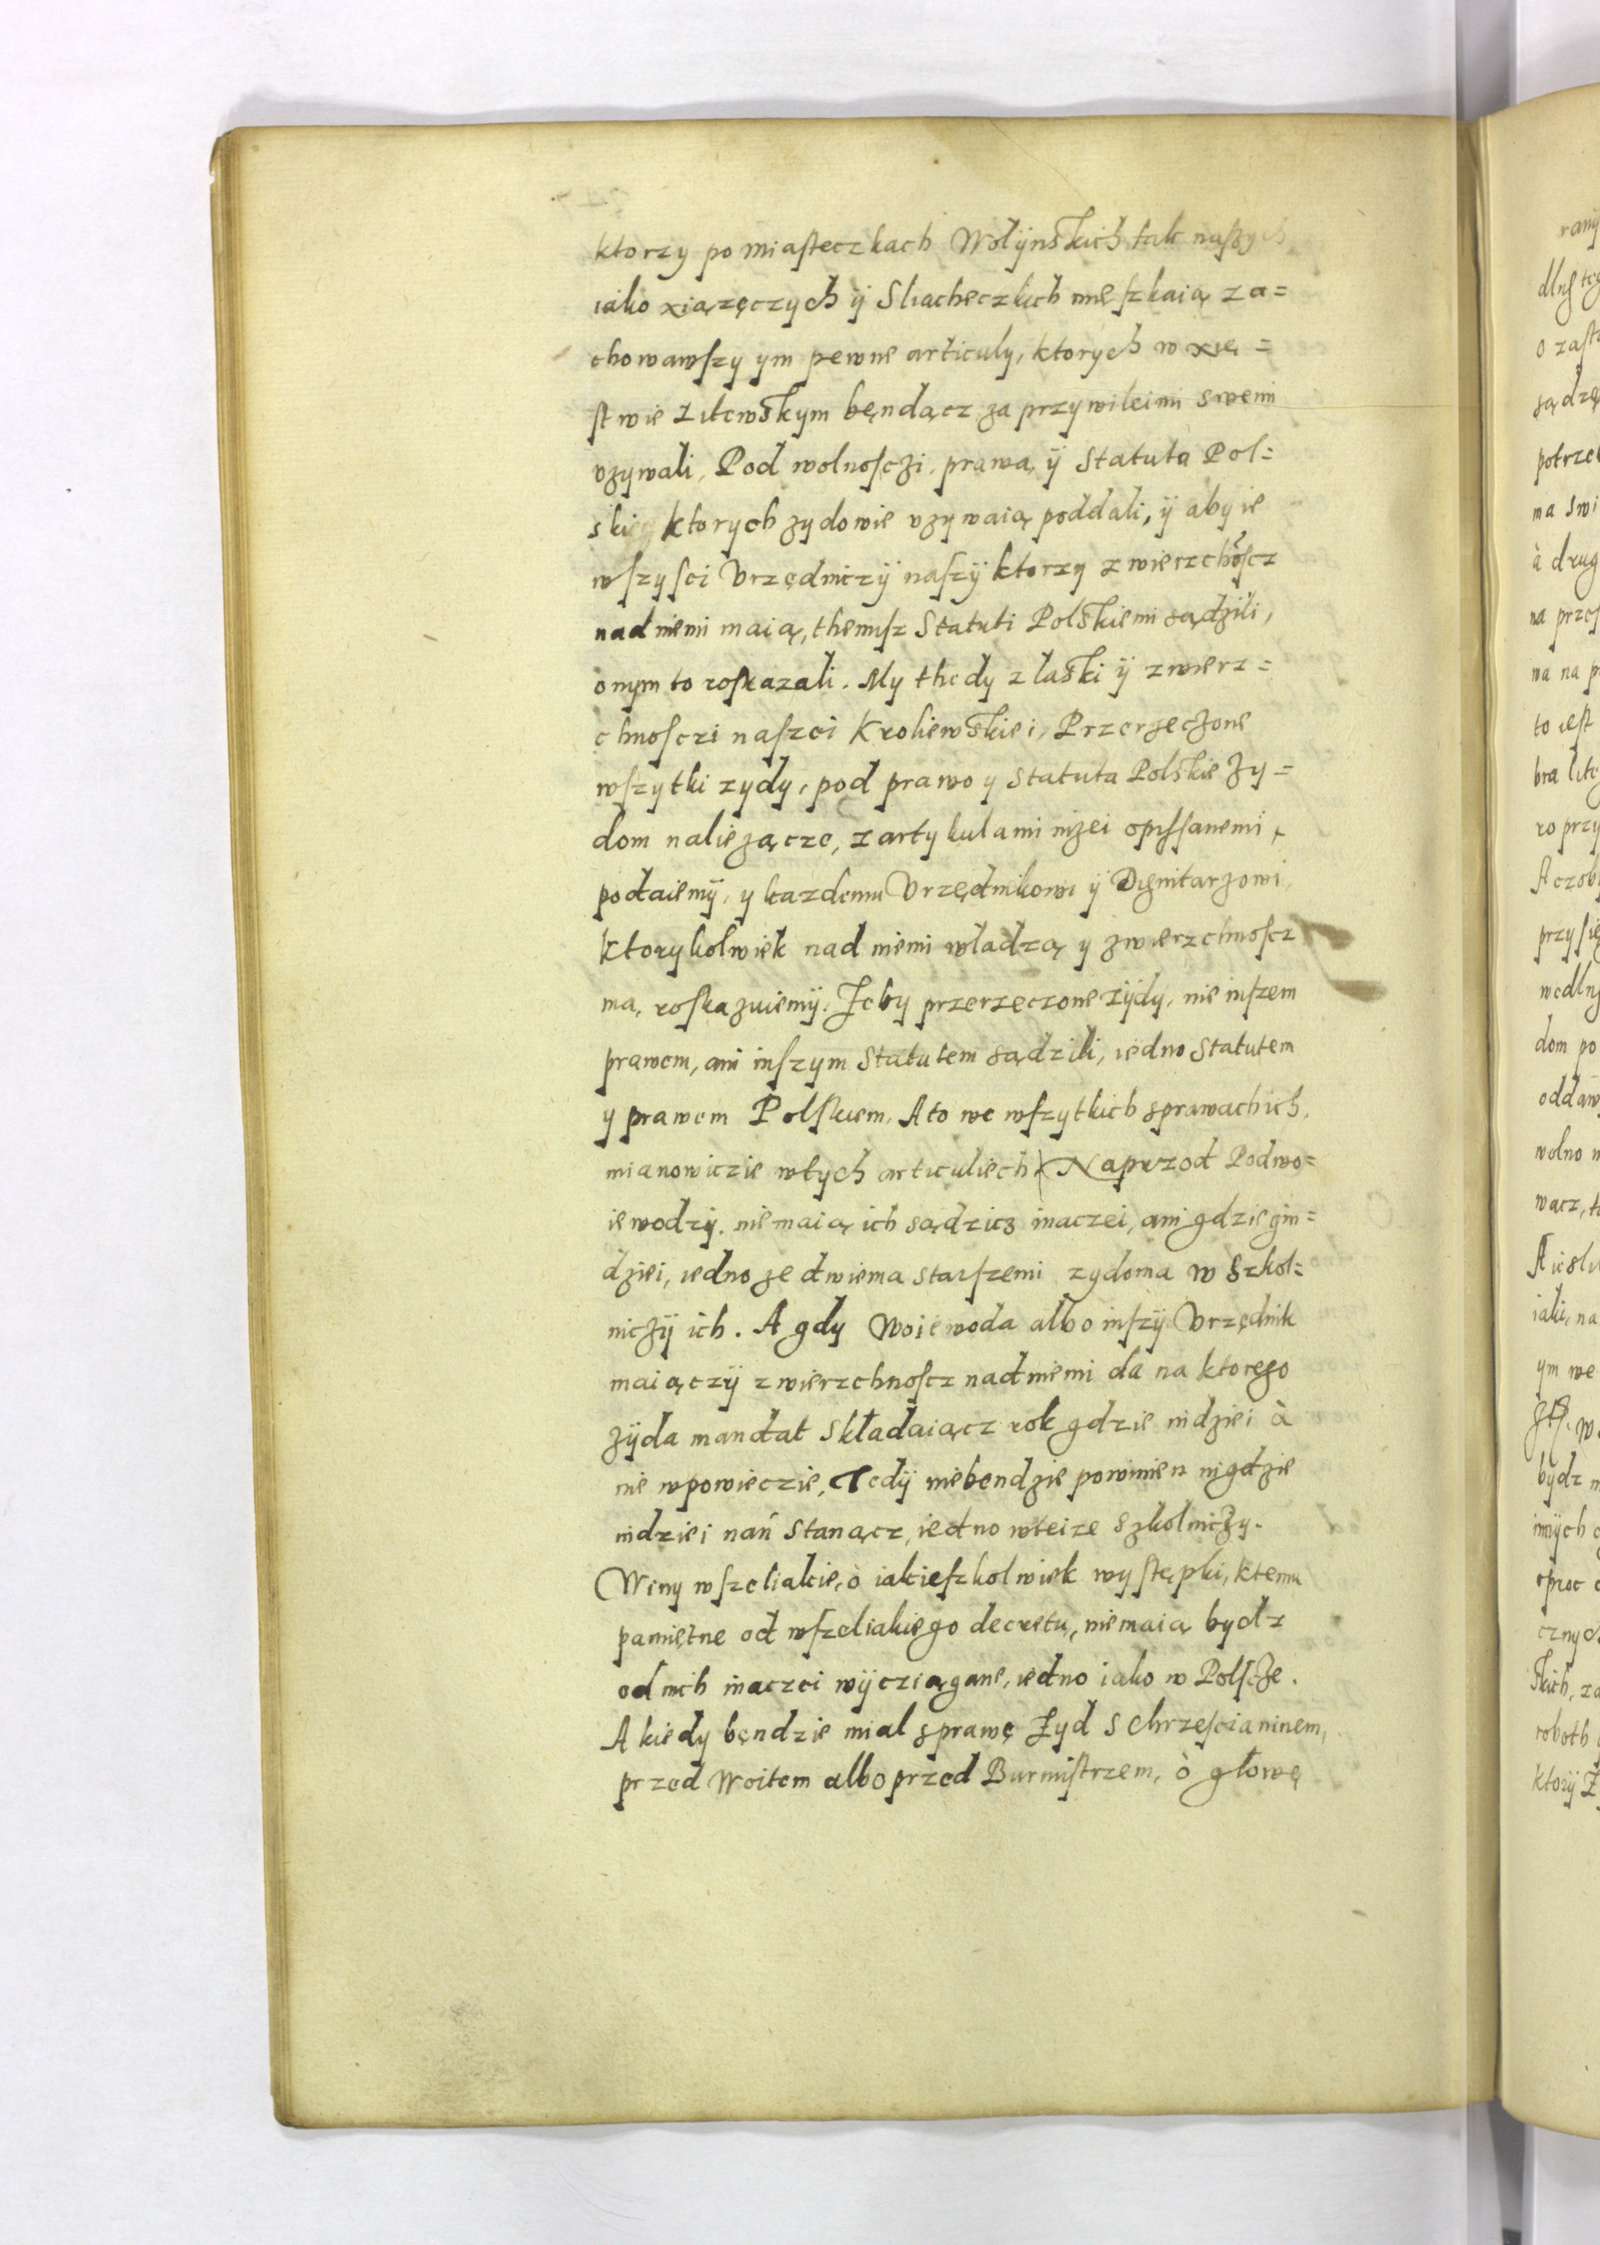 ktorzy po miasteczkach Wołÿnskich tak naszych
iako xiązęczych ÿ Sliacheczkich mieszkaią za=
chowawszy ym pewne articuly, ktorych w xię=
stwie Litewskym bęndącz za przywileimi swemi
vzywali, Pod wolnosczi, prawa, ÿ Statuta Pol=
skie ktorych zydowie vzywaią poddali, ÿ aby ie
wszysci Vrzędniczÿ naszÿ ktorzy zwierzchoscz
nad niemi maią, themisz Statuti Polskiemi sądzili,
onym to roskazali. My thedy z laski ÿ zwierz=
chnosczi naszei Kroliewskiei, Przerzeczone
wszytki zydy, pod prawo y statuta Polskie Zy=
dom naliezącze, z artykulami nizei opissanemi,
podaiemÿ, y kazdemu Vrzędnikowi ÿ Dignitarzowi,
Ktorykolwiek nad niemi władzą y zwierzchnoscz
ma, roskazuiemÿ. Zeby przerzeczone zÿdy, nie inszem
prawem, ani inszym statutem sądzili, iedno statutem
y prawem Polskiem. A to we wszytkich sprawach ich,
mianowiczie w tych articuliech. Naprzod Podwo=
iewodzÿ. nie maią ich sądzicz inaczei, ani gdzie gin=
dziei, iedno ze dwiema starszemi zydoma w Szkol=
niczÿ ich. A gdy Woiewoda albo inszÿ Vrzędnik
maiączÿ zwierzchnoscz nad niemi da na ktorego
Zÿda mandat składaiącz rok gdzie indziei à
nie w powieczie, Tedÿ niebendzie powinien nigdzie
indziei nań stanącz, iedno w teize Szkolniczy.
Winy wszeliakie, ò iakieszkolwiek występki, k temu
pamiętne od wszeliakiego decretu, nie maią bydz
od nich inaczei wÿcziągane, iedno iako w Polscze.
A kiedy bęndzie mial sprawę Zyd s Chrzescianinem,
przed Woitem albo przed Burmistrzem, ò głowę